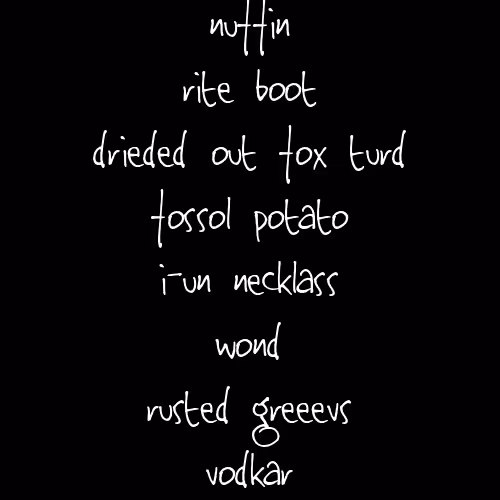 nuffin
rite boot
drieded out fox turd
fossol potato
i-un necklass
wond
rusted greeevs
vodkar